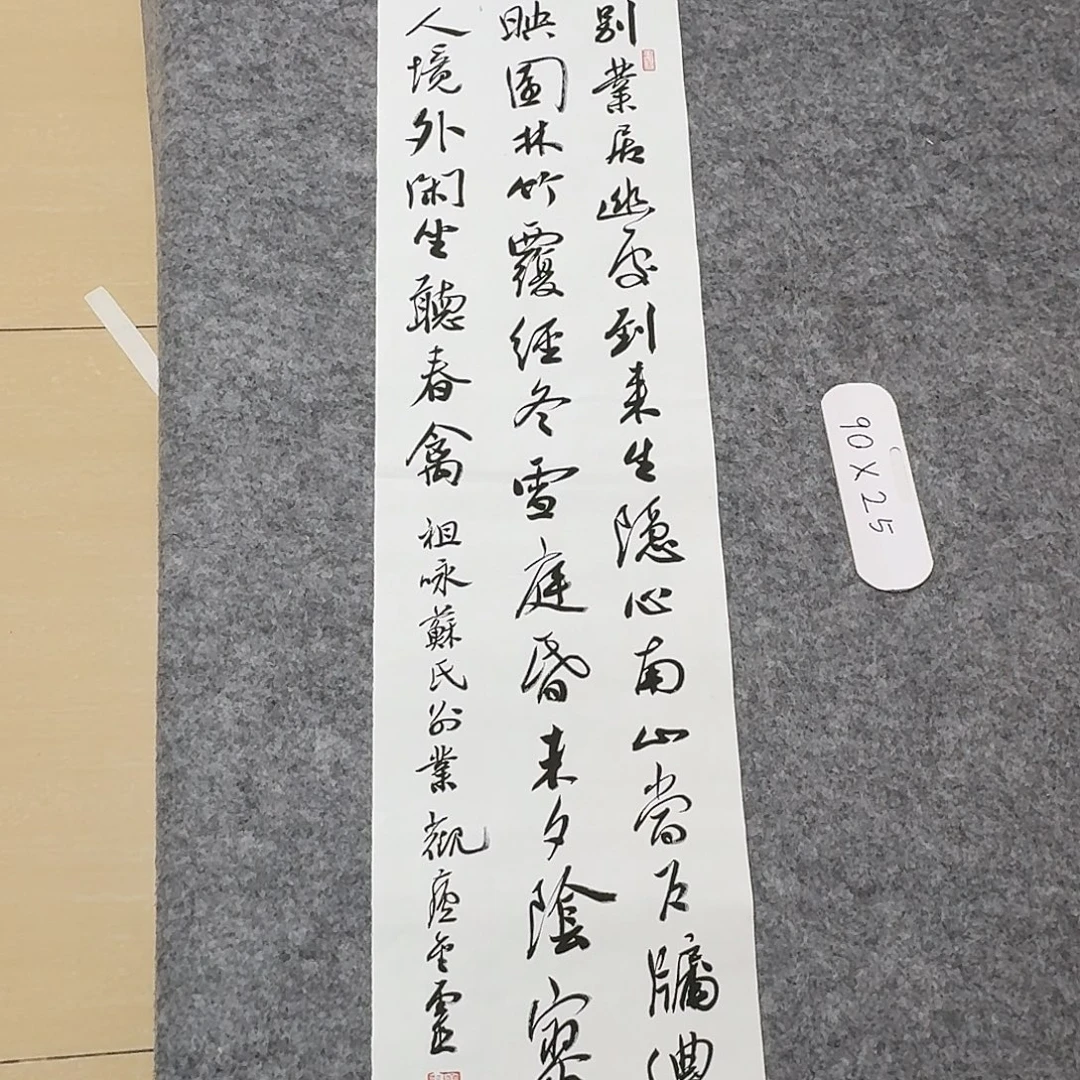 別業居幽處到来生隱心南山當戶牖
映園林竹覆經冬雪庭昏未夕陰寥
人境外閑坐聽春禽 祖咏蘇氏別業 觀
90X25